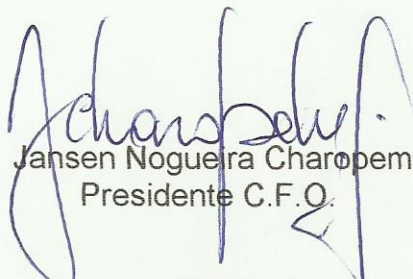 Jansen Nogueira Charopem
Presidente C.F.O.